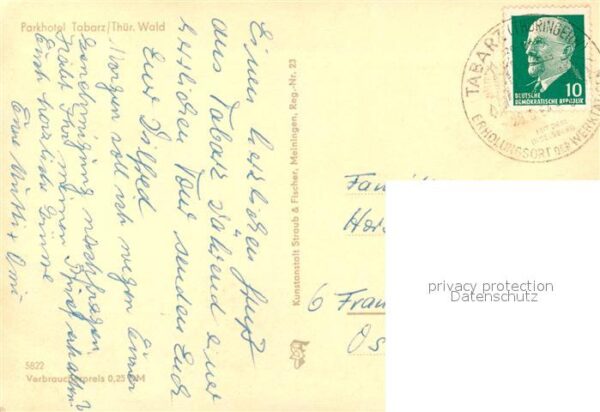 Parkhotel Tabarz/Thür. Wald
Einen herzlichen Gruß
aus Tabarz während einer
herrlichen Tour senden Euch
Eure
Morgen soll ich wegen Einer
Genehmigung nachfragen
Habt Ihr meinen Brief erhalten?
Euch herzliche Grüße
Eure Mutti + Omi
5822
Verbraucherpreis 0,25 DM
Kunstanstalt Straub & Fischer, Meiningen, Reg.-Nr. 23
TABARZ (THÜRINGEN)
ERHOLUNGSORT DER WERKTÄTIGEN
10
DEUTSCHE
DEMOKRATISCHE REPUBLIK
Famili
Hor
6 Fran
Os
privacy protection
Datenschutz